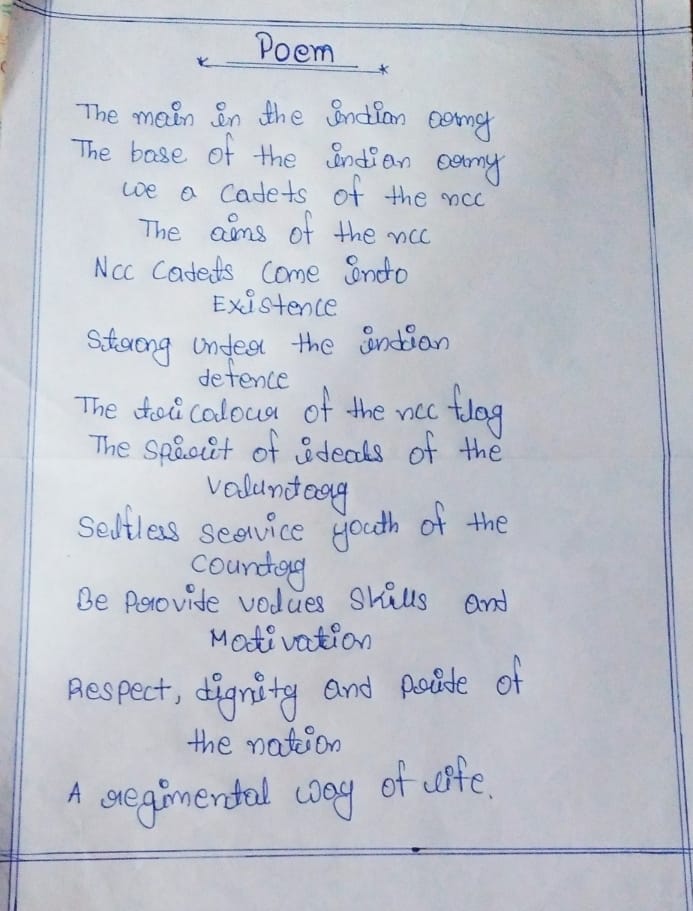 Poem
The main in the indian army
The base of the indian army
we a cadets of the ncc
The aims of the ncc
Ncc Cadets Come into
Existence
Strong under the indian
defence
The tri colour of the ncc flag
The spirit of ideals of the
Voluntary
Selfless service youth of the
Country
Be Provide values Skills and
Motivation
Respect, dignity and pride of
the nation
A regimental way of life.